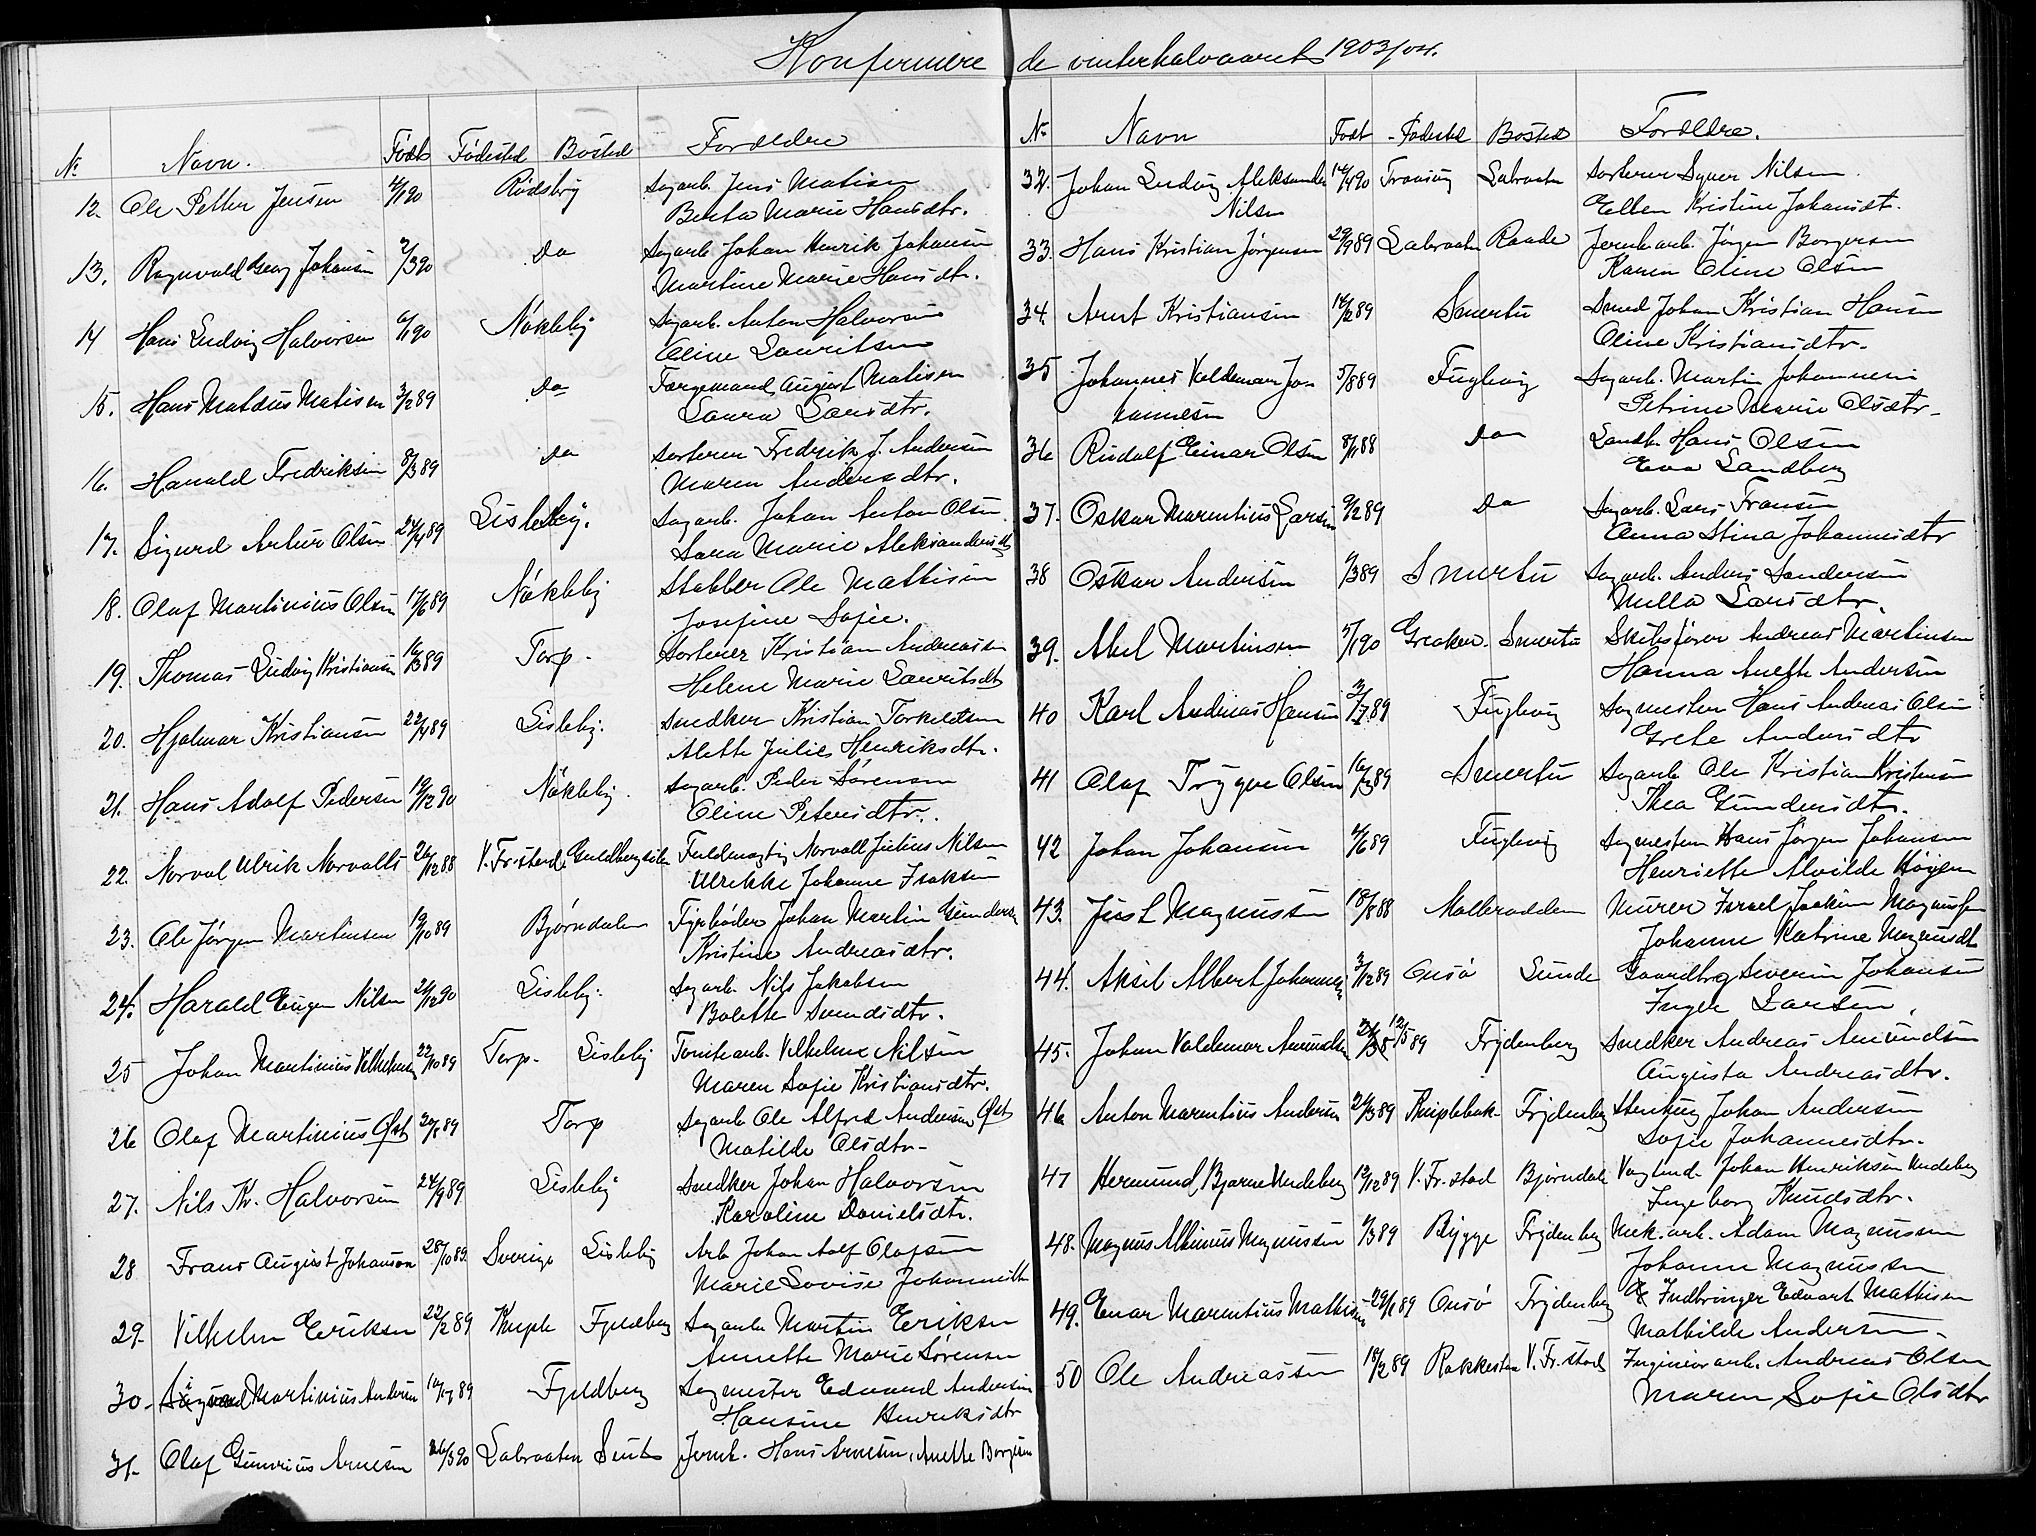 Konfirmere de vinterhalvaaret 1903/04.
No Navn. Født Fødested Bosted Forældre
12. Ole Petter Jensen 4/190 Rødsby Sagarb. Jens Matisen
Berta Marie Hansdtr.
13. Ragnvald Georg Johansen 2/390 Do Sagarb. Johan Henrik Johansen
Martine Marie Hansdtr.
14 Hans Ludvig Halvorsen 6/190 Nökleby Sagarb. Anton Halvorsen
Oline Lauritsen
15. Hans Matæus Matisen 3/289 Do Færgemand August Matisen
Laura Larsdtr.
16. Harald Fredriksen 8/389 Do Sorterer Fredrik J. Andersen
Maren Andersdtr.
17. Sigurd Artur Olsen 24/489 Lisleby. Sagarb. Johan Anton Olsen
Sara Marie Aleksandersdtr
18. Olaf Martinius Olsen 17/689 Nökleby Stabber Ole Mathisen
Josefine Sofie.
19. Thomas Ludvig Kristiansen 16/389 Torp. Sorterer Kristian Andreassen
Helene Marie Lauritsdtr
20. Hjalmar Kristiansen 22/489 Lisleby. Snedker Kristian Torkildsen
Alette Julie Henriksdtr.
21. Hans Adolf Pedersen 19/1290 Nökleby. Sagarb. Peder Sørensen
Oline Petersdtr.
22. Norval Ulrik Norvalls 26/1288 V. Fr.stad. Guldbergsiden Fuldmægtig Norvall Julius Nilsen
Ulrikke Johanne Isaksen
23. Ole Jørgen Martinsen 19/1089 Bjørndalen Fyrbøder Johan Martin Gundersen
Kristine Andreasdtr.
24. Harald Eugen Nilsen 24/1290 Lisleby. Sagarb. Nils Jakobsen
Bolette Svendsdtr.
25 Johan Martinius Vilhelmsen 22/1089 Torp. Lisleby Tomtearb. Vilhelm Nilsen
Maren Sofie Kristiansdtr.
26 Olaf Martinius Øst 20/889 Torp Sagarb Ole Alfred Andersen Øst
Matilde Olsdtr.
27. Nils Kr. Halvorsen 24/989 Lisleby Snedker Johan Halvorsen
Karoline Danielsdtr.
28 Frans August Johanson 28/1089 Sverige Lisleby Arb. Johan Adolf Olofsen
Marie Lovise Johannisdtr
29. Vilhelm Eriksen 22/289 Kniple Fjeldberg Sagarb. Martin Eriksen
Annette Marie Sørensen
30. Martinius Andersen Fjeldberg Sagmester Edvard Andersen
Hansine Henriksdtr
31. Olaf Gunerius Arnesen 26/390 Labraaten Jernb. Hans Arnesen, Anette Borgersen
No Navn Født Fødested Bosted Forældre.
32. Johan Ludvig Aleksander 14/490 Labraaten Sorterer Syver Nilsen.
Nilsen Ellen Kristine Johansdtr.
33. Hans Kristian Jørgensen 29/989 Labraaten Raade Jernb.arb. Jørgen Borgersen
Karen Oline Olsen
34. Arnt Kristiansen 14/289 Smertu Smed Johan Kristian Hansen
Oline Kristiansdtr.
35 Johannes Valdemar Jo- 5/889 Fuglevig Sagarb. Martin Johannesen
hannesen Petrine Marie Olsdtr.
36 Rudolf Einar Olsen 8/1188 Do Landh. Hans Olsen
Eva Sandberg
37. Oskar Marentius Larsen 9/289 Do Sagarb. Lars Fransen
Anna Stina Johannesdtr
38 Oskar Andersen 9/389 Smertu Sagarb. Anders Sandersen
Milla Larsdtr.
39. Abel Martinsen 5/190 Greaker. Smertu Skibsfører Andreas Martinsen
Hanna Anette Andersen
40 Karl Andreas Hansen 3/789 Fuglevig Sagmester Hans Andreas Olsen
Grete Andersdtr
41 Olaf Trygve Olsen 16/389 Smertu Sagarb Ole Kristian Kristensen
Thea Gundersdtr.
42 Johan Johansen 4/689 Fuglevig Sagmester Hans Jørgen Johansen
Henriette Alvilde Høyem
43. Just Magnussen 18/888 Molbrodden Murer Israel Joakim Magnussen
Johanne Katrine Magnusdtr
44. Aksel Albert Johannsen 3/1289 Onsø Sunde Gaardbrg Severin Johansen
Inger Larsen
45. Johan Valdemar Amundsen 12/589 Frydenberg Snedker Andreas Amundsen
Augusta Andreasdtr.
46 Anton Marentius Andersen 24/389 Kniplebak. Frydenberg Stenhug Johan Andersen
Sofie Johannesdtr.
47 Hermund Bjarne Undeberg 12/1289 V. Fr.stad Bjørndalen Vogtmd. Johan Henriksen Undeberg
Ingeborg Knudsdtr.
48. Magnus Albinius Magnussen 9/389 Bygge Frydenberg Mek. arb. Adam Magnussen
Johanne Magnussen
49. Einar Marentius Mathisen 29/189 Onsø Frydenberg Indbringer Edvart Mathisen
Mathilde Andersen.
50 Ole Andreassen 18/289 Rakkestad V. Fr.stad Ingeniørarb. Andreas Olsen
Maren Sofie Olsdtr